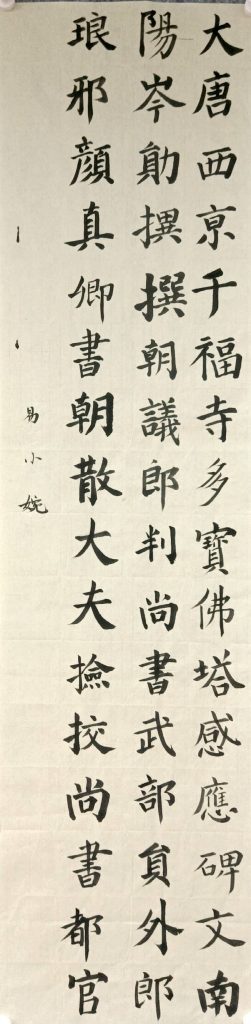 大唐西京千福寺多寶佛塔感應碑文南
陽岑勛撰撰朝議郎判尚書武部負外郎
琅邪顏真卿書朝散大夫撿挍尚書都官
易小婉